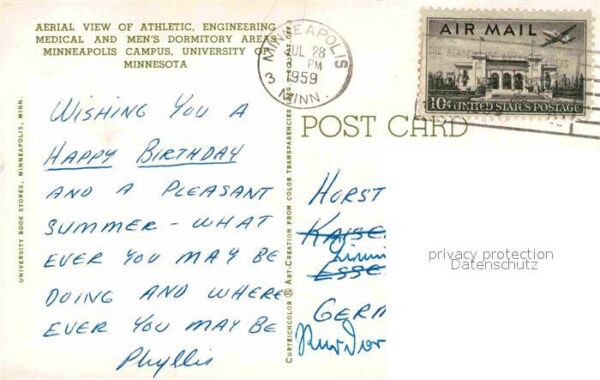 AERIAL VIEW OF ATHLETIC, ENGINEERING
MEDICAL AND MEN'S DORMITORY AREAS
MINNEAPOLIS CAMPUS, UNIVERSITY OF
MINNESOTA
WISHING YOU A
HAPPY BIRTHDAY
AND A PLEASANT
SUMMER - WHAT
EVER YOU MAY BE
DOING AND WHERE
EVER YOU MAY BE
Phyllis
UNIVERSITY BOOK STORES, MINNEAPOLIS, MINN.
CURTEICHCOLOR ® ART-CREATION FROM COLOR TRANSPARENCIES
MINNEAPOLIS
JUL 28
PM
1959
3
MINN.
AIR MAIL
10¢ UNITED STATES POSTAGE
POST CARD
HORST
KAISE
ESSE
GERM
privacy protection
Datenschutz